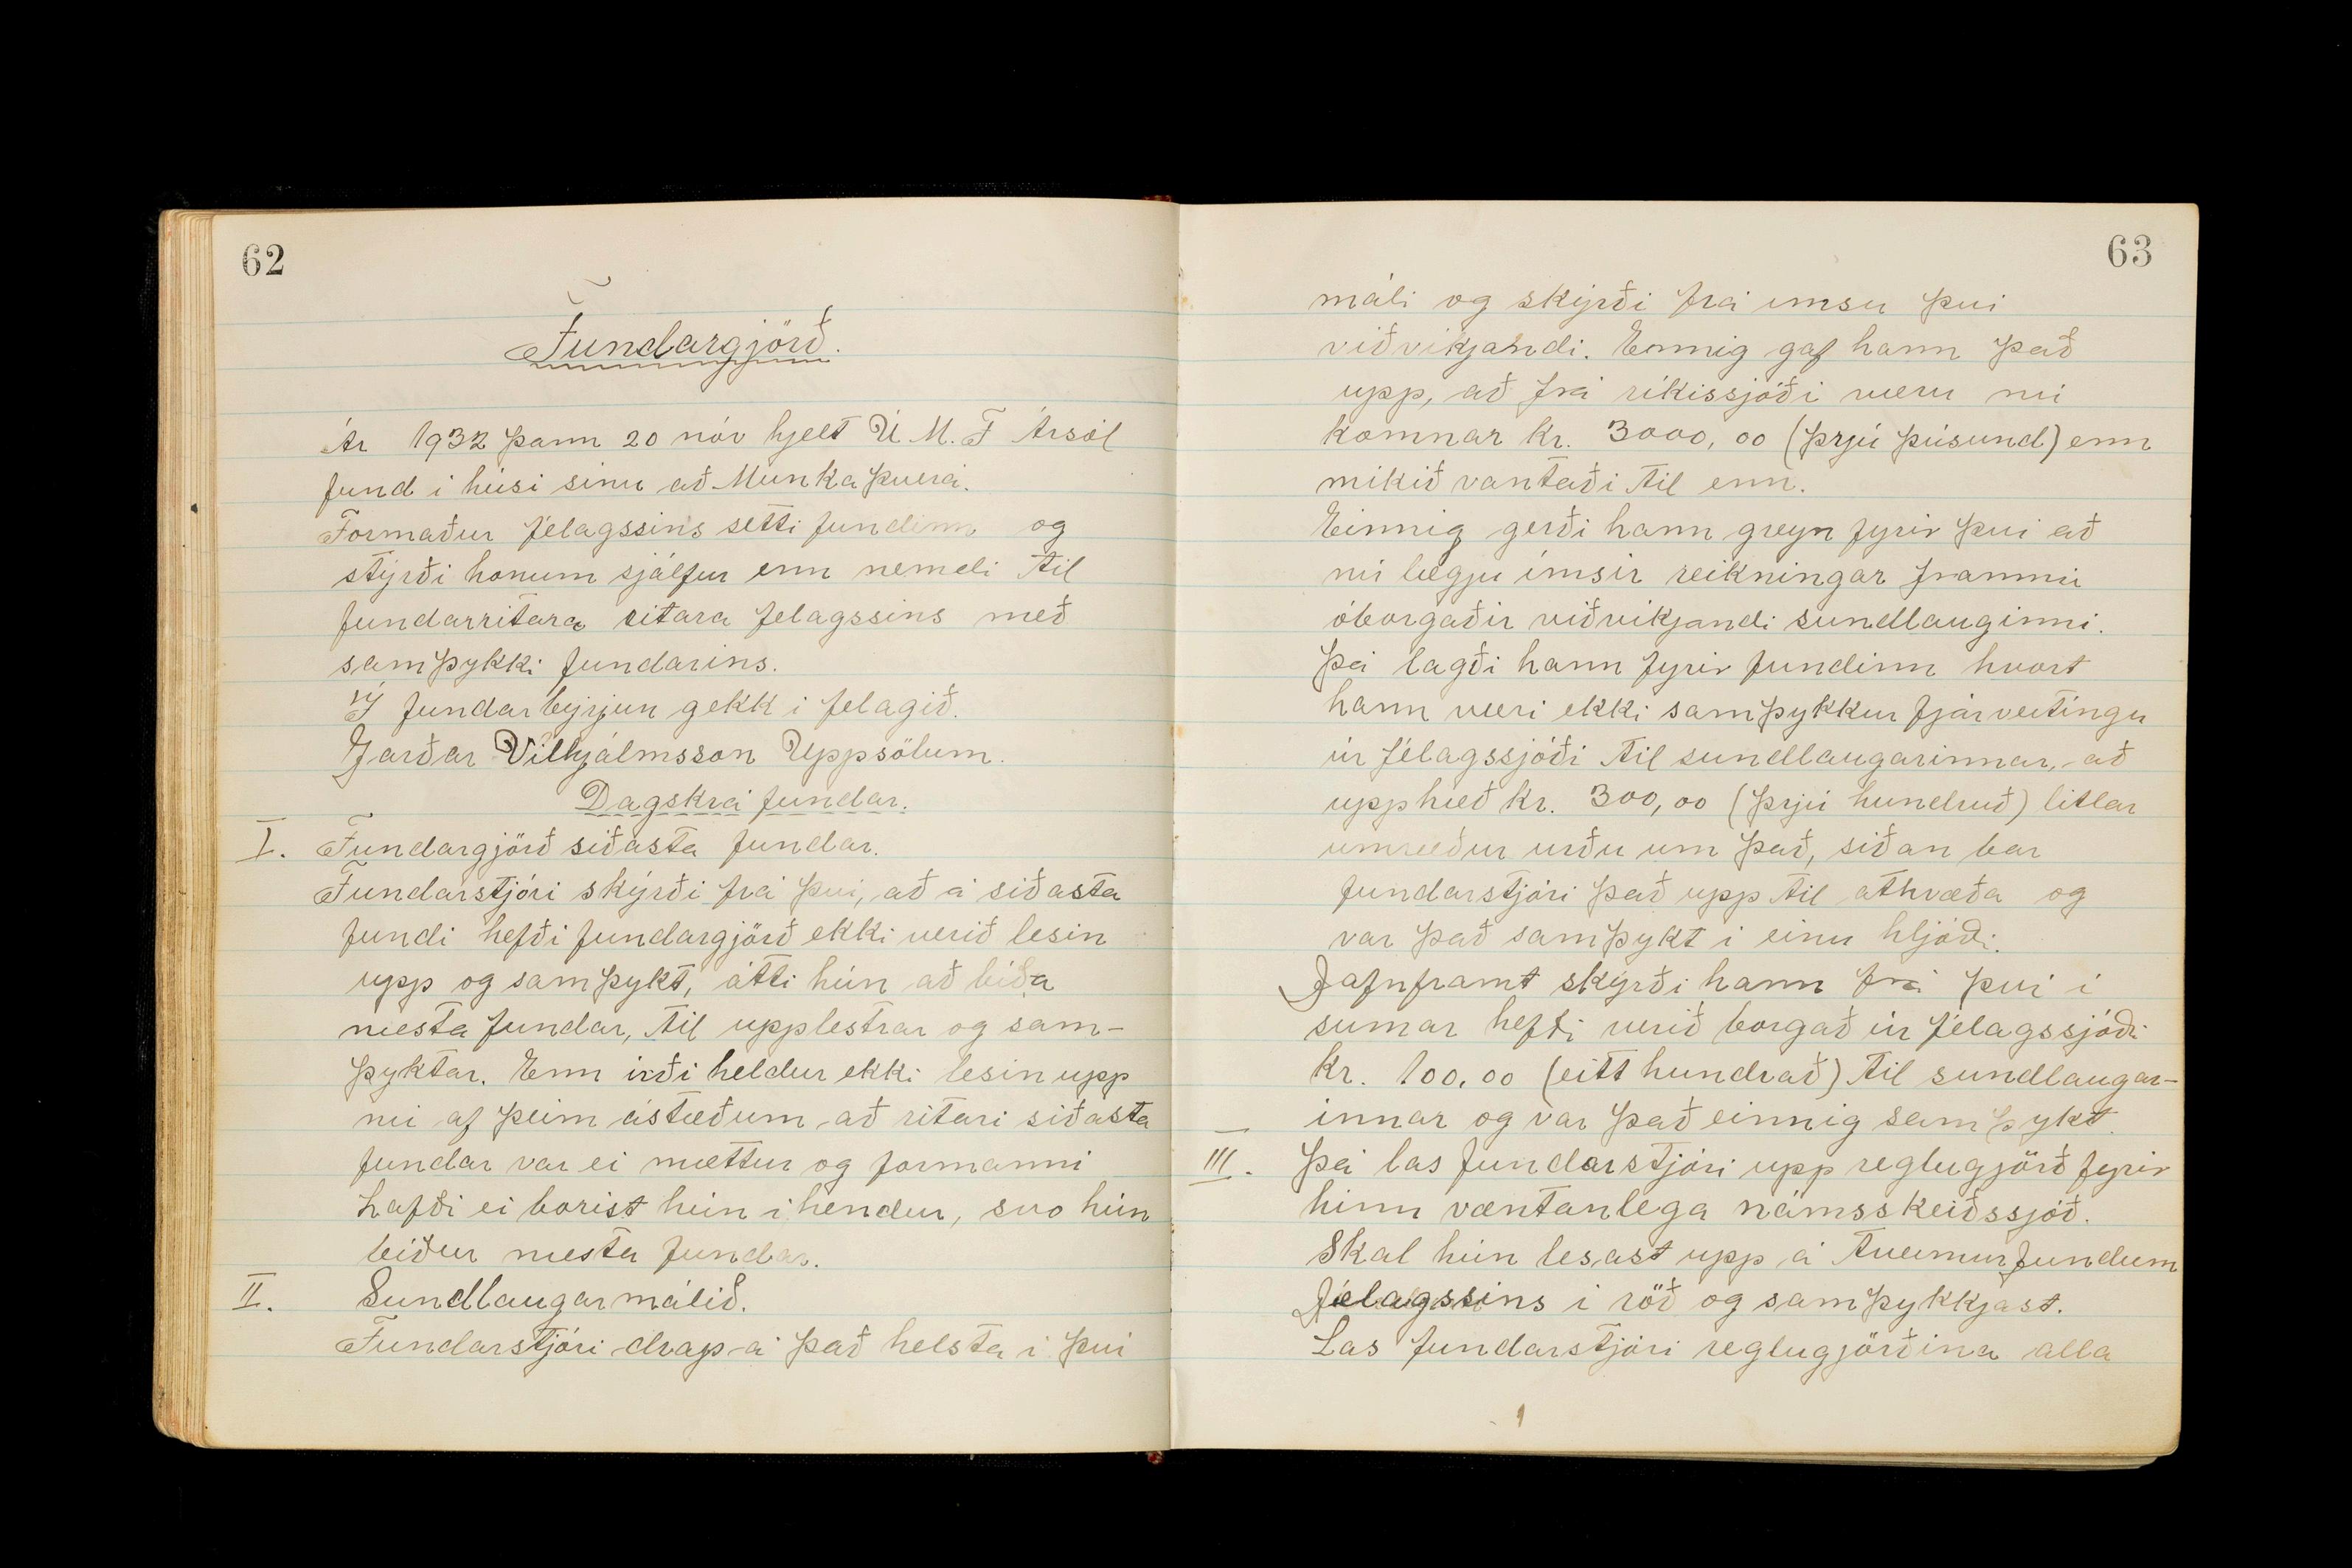 62
Fundargjörð.
Ár 1932 þann 20 nóv hjelt U. M. F Ársól
fund í húsi sínu að Munkaþverá.
Formaður félagssins setti fundinn og
stýrði honum sjálfur enn nemdi til
fundarritara ritara felagssins með
samþykki fundarins.
Í fundarbyrjun gekk í felagið.
Garðar Vilhjálmsson Uppsölum.
Dagskrá fundar.
I. Fundargjörð síðasta fundar.
Fundarstjóri skýrði frá því, að á síðasta
fundi hefði fundargjörð ekki verið lesin
upp og samþykt, átti hún að bíða
næsta fundar, til upplestrar og sam-
þyktar. Enn irði heldur ekki lesin upp
nú af þeim ástæðum að ritari síðasta
fundar var ei mættur og formanni
hafði ei borist hún í hendur, svo hún
bíður næsta fundar.
II. Sundlaugarmálið.
Fundarstjóri drap á það helsta í því
63
máli og skýrði frá imsu því
viðvíkjandi. Ennig gaf hann það
upp, að frá ríkissjóði væru nú
komnar kr. 3000,00 (þrjú þúsund) enn
mikið vantaði til enn.
Einnig gerði hann greyn fyrir því að
nú lægju ímsir reikningar frammi
óborgaðir viðvíkjandi sundlauginni.
Þá lagði hann fyrir fundinn hvort
hann væri ekki samþykkur fjárveitingu
úr félagssjóði til sundlaugarinnar, að
upphæð kr. 300,00 (þrjú hundruð) litlar
umræður urðu um það, síðan bar
fundarstjóri það upp til athvæða og
var það samþykt í einu hljóði.
Jafnframt skýrði hann frá því í
sumar hefði verið borgað úr félagssjóði
kr. 100,00 (eitt hundrað) til sundlaugar-
innar og var það einnig samþykt.
III. Þá las fundarstjóri upp reglugjörð fyrir
hinn væntanlega námsskeiðssjóð.
Skal hún lesast upp á tveimur fundum
félagssins í röð og samþykkjast.
Las fundarstjóri reglugjörðina alla